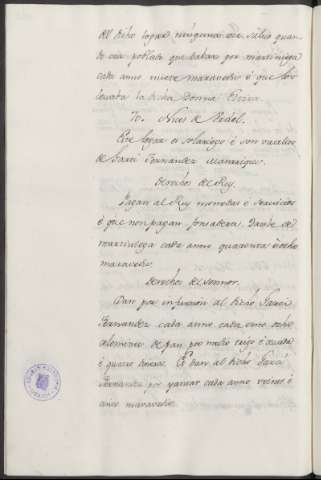 del dicho logar ninguna cosa salvo quan
do era poblado que dahan por martiniega
cada anno nueve maravedis é que los
levaba la dicha Donna
de
Este logar es solariego é son vasallos
de Garci Fernandez Manrrique.
Derechos del Rey.
Pagan al Rey monedas é servicios
é que non pagan fonsadera. Danle de
martiniega cada anno quarenta é ocho
maravedis.
Derechos del Sennor.
Dan por infurcion al dicho Garci
Fernandez cada anno cada uno ocho
celemines de pan por medio trigo é cevada
é quatro dineros. E dan al dicho Garci
Fernandez por yantar cada anno veinte é
cinco maravedis.